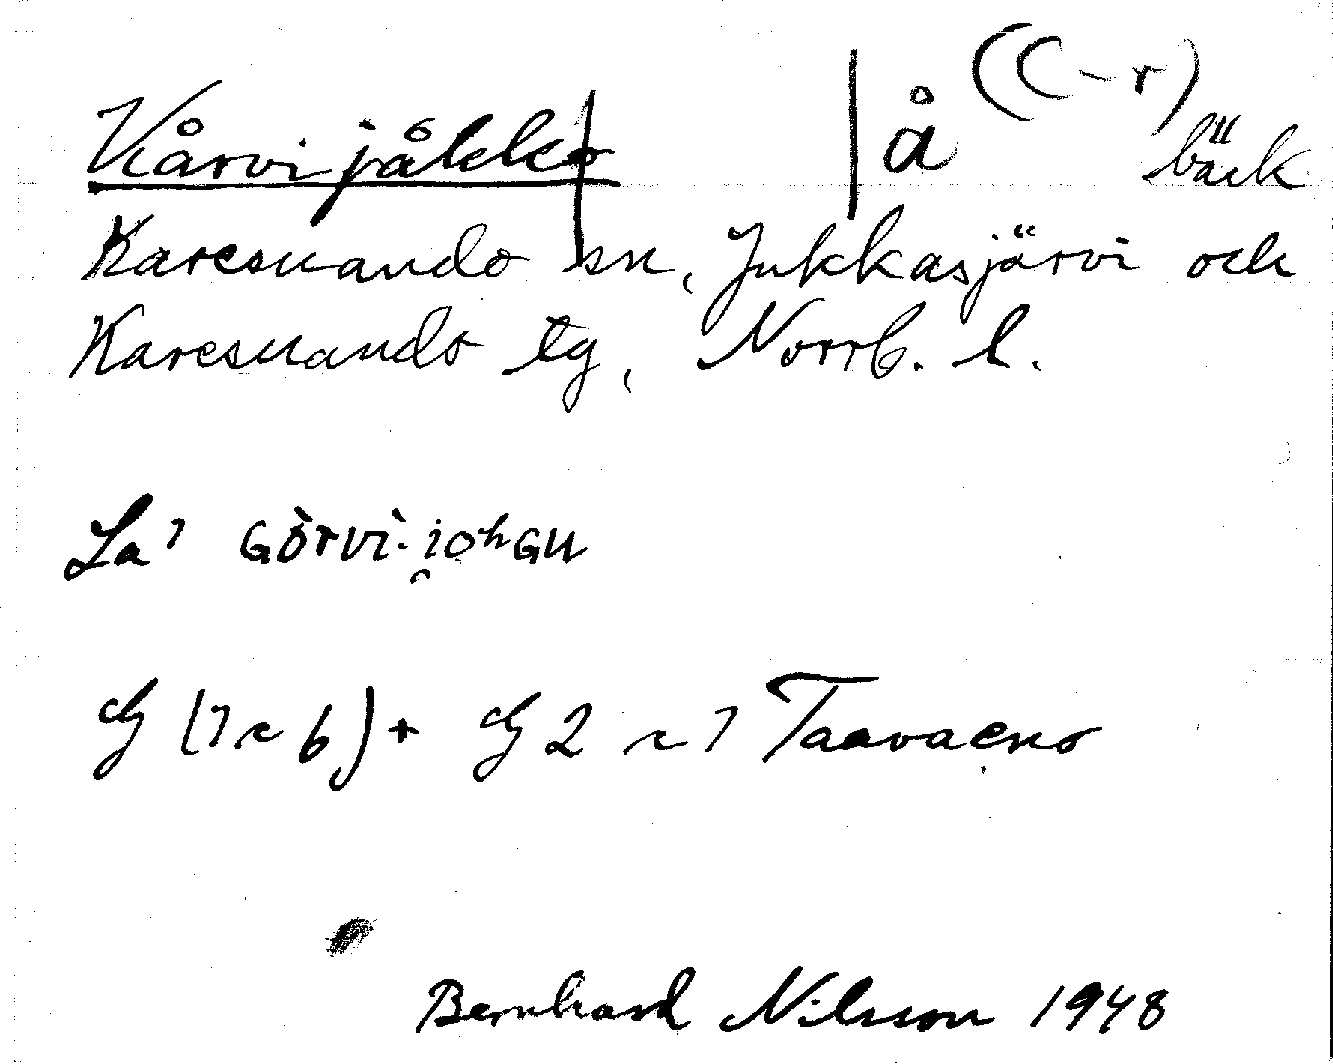 Kårvijåkko | å ((C-r) bäck
Karesuando sn, Jukkasjärvi och
Karesuando tg, Norrb. l.
La1 Gòrvì-johGu
Taavaeno
Bernhard Nilsson 1948